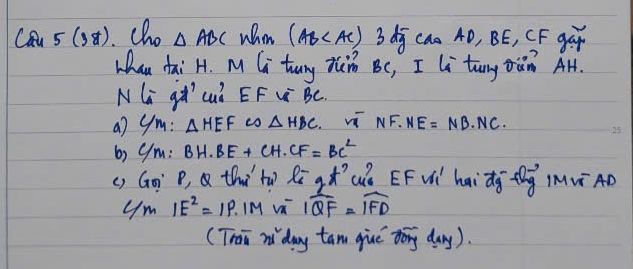 Câu 5 (3đ). Cho Δ ABC nhọn (AB < AC) 3 đg cao AD, BE, CF gặp
nhau tại H. M là trung điểm BC, I là trung điểm AH.
N là gđ' của EF và BC.
a) C/m: Δ HEF ∽ Δ HBC. và NF.NE = NB.NC.
b) C/m: BH.BE + CH.CF = BC²
c) Gọi P, Q thứ tự là gđ' của EF với hai đg thg IM và AD
C/m IE² = IP.IM và IQF = IFD
( sử dụng tam giác đồng dạng).
25